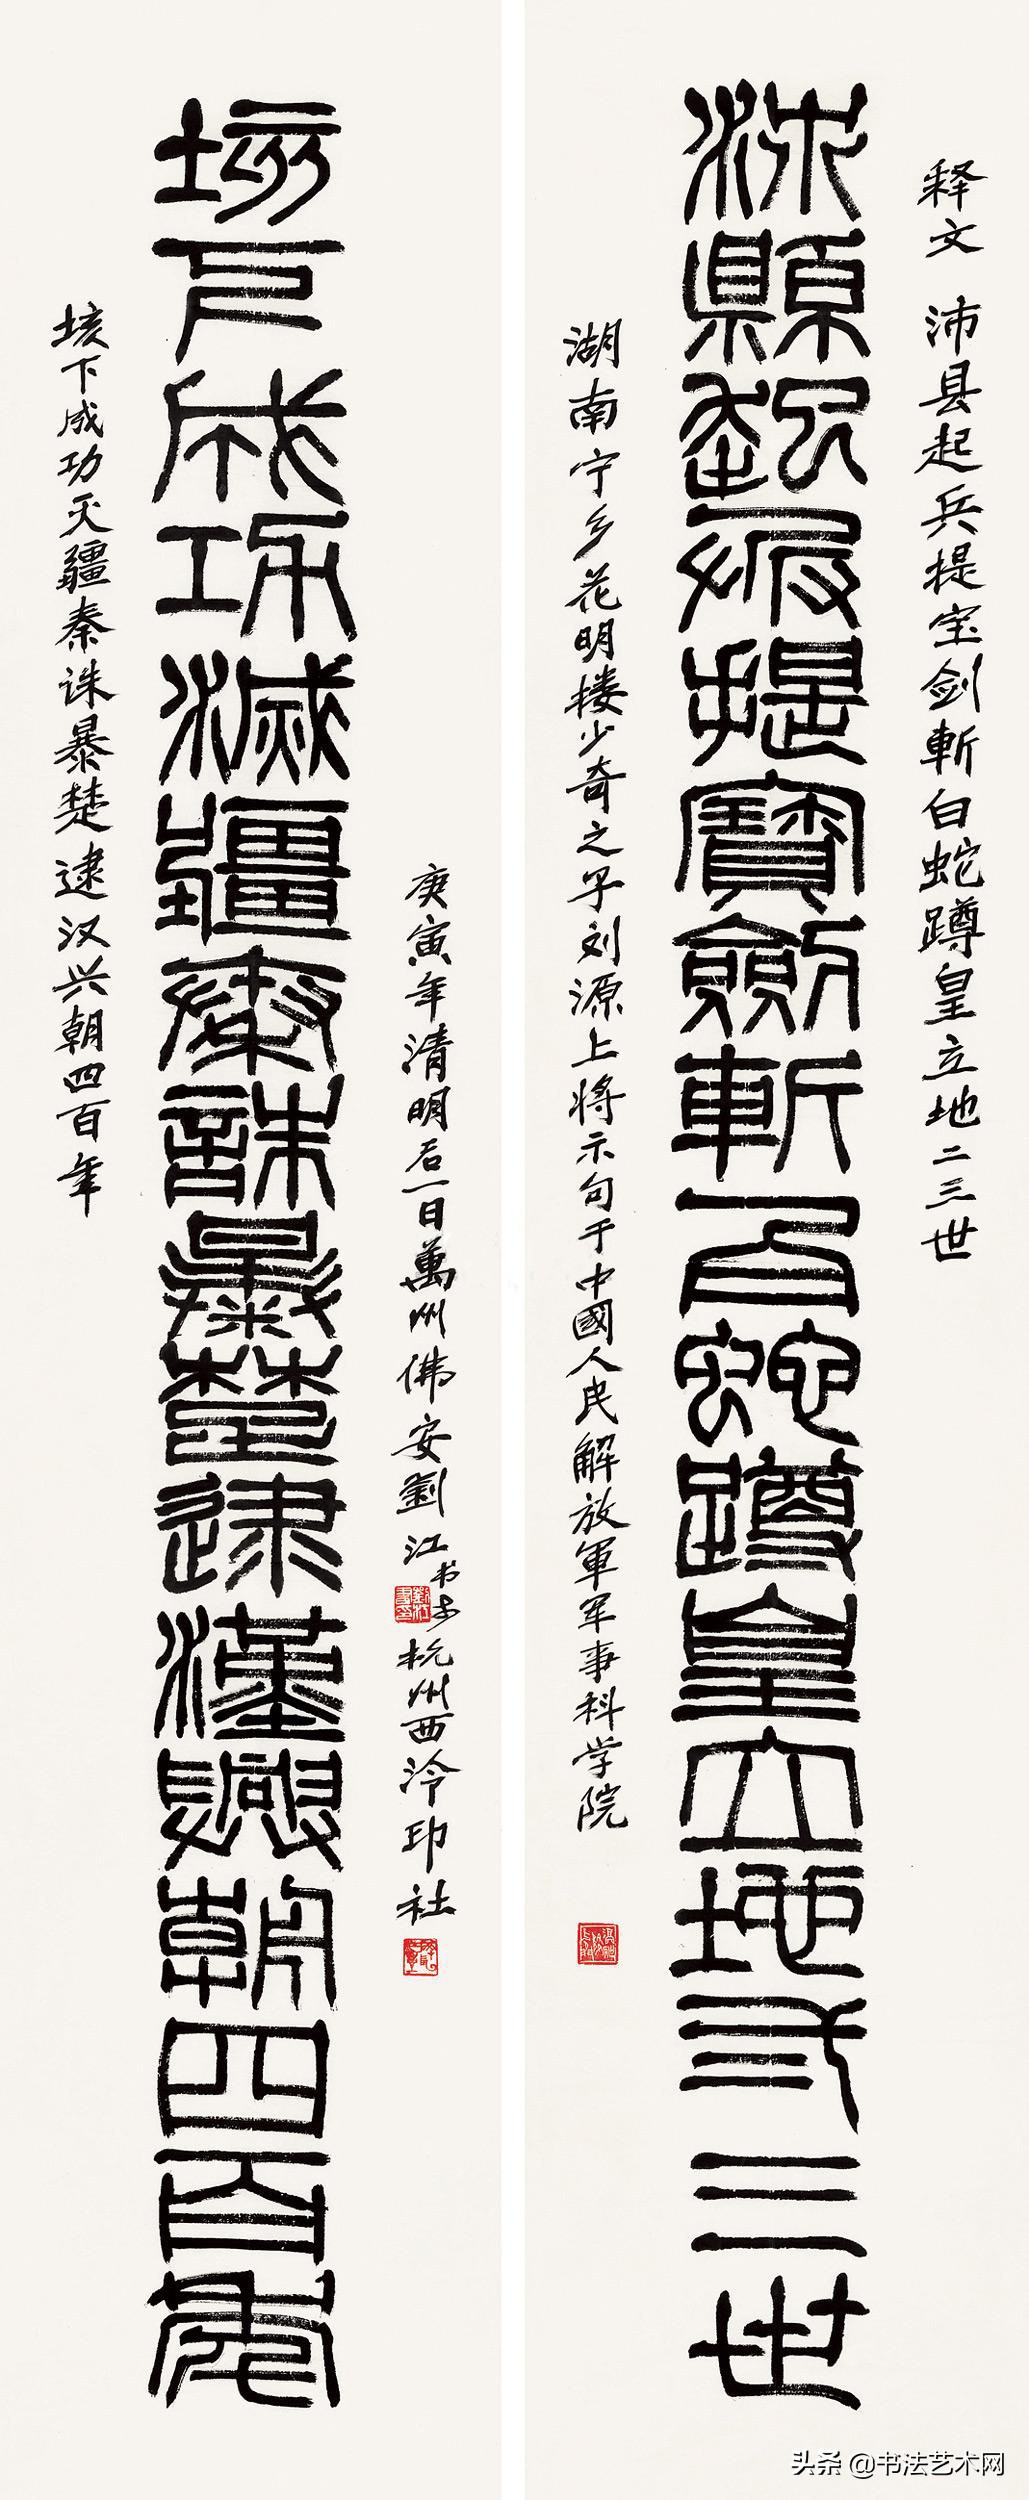 释文 沛县起兵提宝剑斬白蛇蹲皇立地二三世
沛縣起兵提寶劍斬白蛇蹲皇立地弍三世
湖南宁乡花明楼少奇之子刘源上将示句于中國人民解放軍军事科学院
庚寅年清明后一日萬州佛安劉江书于杭州西泠印社
垓下成功滅疆秦誅暴楚逮漢興朝四百年
垓下成功灭疆秦诛暴楚逮汉兴朝四百年
头条 @书法艺术网